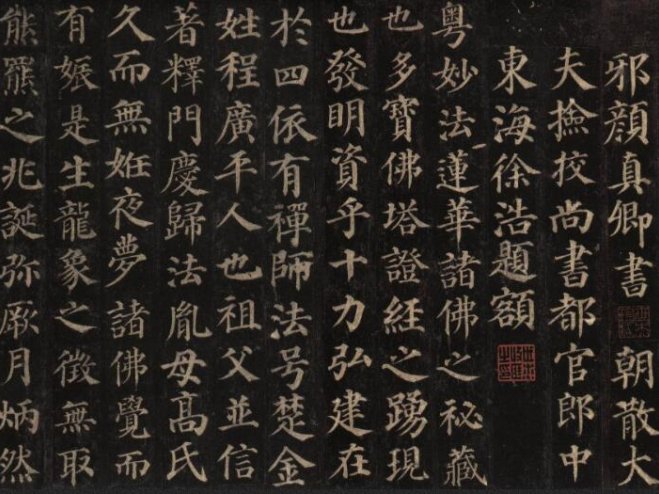 邪顏真卿書 朝散大
夫撿挍尚書都官郎中
東海徐浩題額
粵妙法蓮華諸佛之祕藏
也多寶佛塔證經之踴現
也發明資乎十力弘建在
於四依有禪師法号楚金
姓程廣平人也祖父並信
著釋門慶歸法胤母高氏
久而無姙夜夢諸佛覺而
有娠是生龍象之徵無取
熊羆之兆誕弥厥月炳然